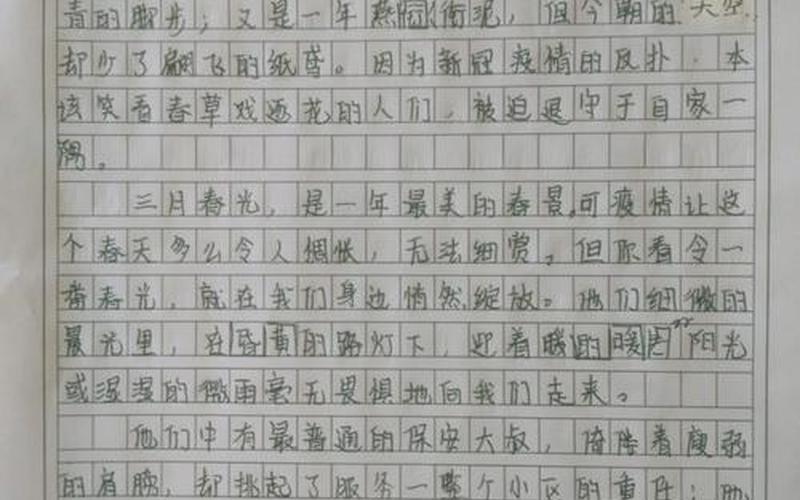 青的脚步；又是一年燕衔泥，但今朝的天空
却少了翩飞的纸鸢。因为新冠疫情的反扑，本
该笑看春草戏迎花的人们，被迫退守于自家一
隅。
三月春光，是一年最美的春景，可疫情让这
个春天多么令人惆怅，无法细赏。但你看令一
番春光，就在我们身边悄然绽放。他们细微的
晨光里，在昏黄的路灯下，迎着暖的暖阳光
或湿湿的微雨毫无畏惧地向我们走来。
他们中有最普通的保安大叔，倚待着瘦弱
的肩膀，却挑起了服务一整个小区的重任；